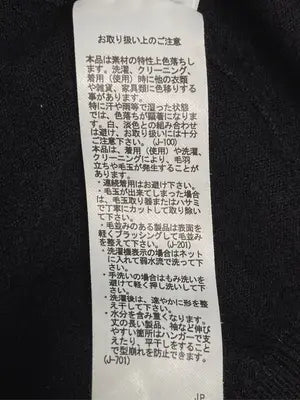 お取り扱い上のご注意
本品は素材の特性上色落ちし
ます。洗濯、クリーニング、
着用（使用）時に他の衣類
や雑貨、家具類に色移りする
事があります。
特に汗や雨等で湿った状態
では、色落ちが顕著になりま
す。白、淡色との組み合わせ
は避け、お取り扱いには十分
ご注意下さい。（J-100）
本品は、着用（使用）や洗濯、
クリーニングにより、毛羽
立ちや毛玉が発生することが
あります。
・連続着用はお避け下さい。
・毛玉が出来てしまった場合
は、毛玉取り器またはハサミ
で丁寧にカットして取り除い
て下さい。
・毛並みのある製品は表面を
軽くブラッシングして毛並み
を整えて下さい。（J-201）
・洗濯機表示の場合はネット
に入れて弱水流で洗って下さ
い。
・手洗いの場合はもみ洗いを
避けて軽く押し洗いして下さ
い。
・洗濯後は、速やかに形を整
え干して下さい。
・水分を含み重くなります。
丈の長い製品、袖など伸び
やすい箇所はハンガーで支え
たり、平干しをすること
で型崩れを防止できます。
（J-701）
JP